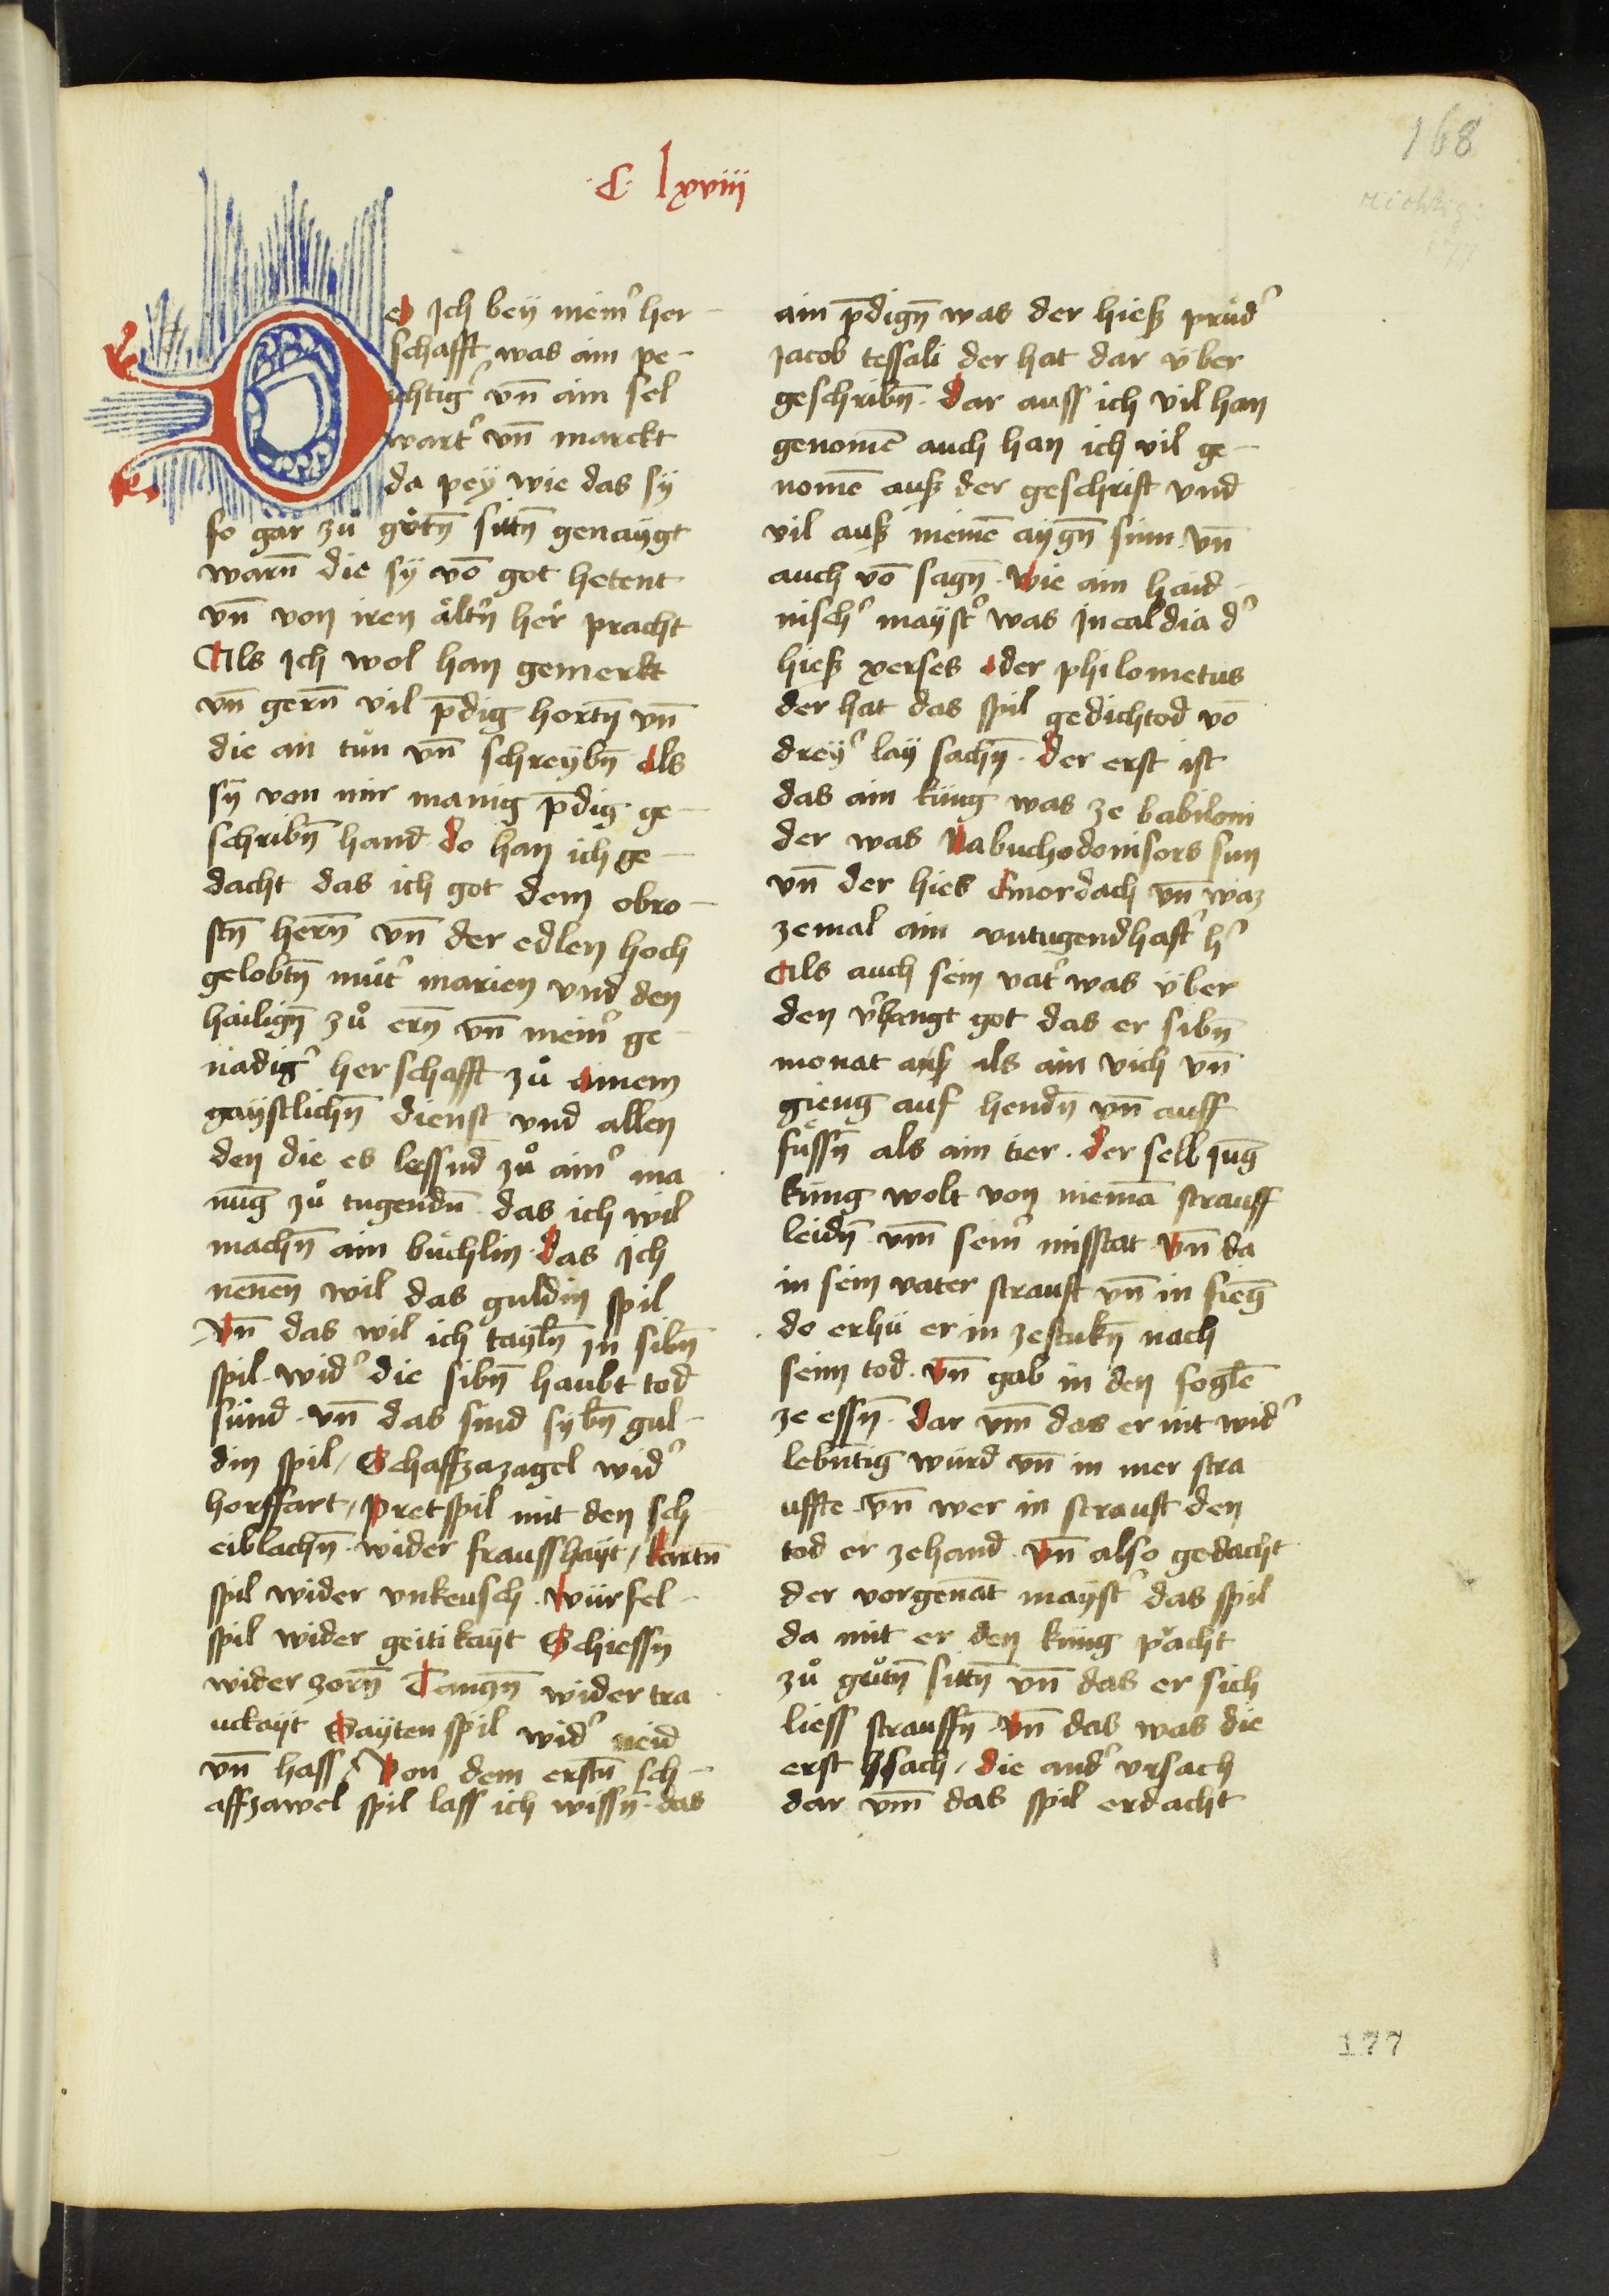 168
richtig:
177
·C· lxviii
Do ich bey meinr̄ her-
schafft was ain pe-
ichtigr̄ vn̄ ain sel
wartr̄ vn̄ marckt
da pey wie das sÿ
so gar zů gůtn̄ sittn̄ genaÿgt
warn̄ die sÿ vō got hetent
vn̄ von iren ältrn̄ her pracht
Als Ich wol han gemerkt
vn̄ gern̄ vil p̄dig hortn̄ vn̄
die an tůn vn̄ schreybn̄ Als
sÿ von mir manig p̄dig ge-
schribn̄ hand do han ich ge-
dacht das ich got dem obro-
stn̄ hern̄ vn̄ der edlen hoch
gelobtn̄ mutr̄ marien vnd den
hailign̄ zů ern̄ vn̄ meinr̄ ge-
nädigr̄ herschafft zů ainem
gaystlichn̄ dienst vnd allen
den die es lessnd zů ainr̄ ma
nūg zů tugendn̄ das ich wil
machn̄ ain büchlin das Ich
nēnen wil das guldin spil
Vn̄ das wil ich tayln̄ in sibn̄
spil widr̄ die sibn̄ haubt tod
sünd vn̄ das sind sybn̄ gul-
din spil / Schaffzazagel widr̄
horffart / Pretspil mit den sch
eiblachn̄ wider fraussháyt / kartn̄
spil wider vnkeusch würfel-
spil wider geitikayt Schiessn̄
wider zorn̄ Tanczn̄ wider tra
uckayt Sayten spil widr̄ neid
vn̄ hass / Von dem erstn̄ sch-
affzawel spil lass ich wissn̄ das
ain p̄dign̄ was der hieß prudr̄
Jacob tessali der hat dar über
geschribn̄ · Dar auss ich vil han
genomē auch han ich vil ge-
nomē auß der geschrift vnd
vil auß meinē aygn̄ sinn vn̄
auch vō sagn̄ · Wie ain haid-
nischr̄ maystr̄ was In caldia dr̄
hieß xerses oder philometus
der hat das spil gedichtod vō
dreyr̄ lay sachn̄ · Der erst ist
das ain küng was ze babiloni
der was Nabuchodonisors sun
vn̄ der hies Emordach vn̄ waz
zemal ain vntugendhaftr̄ hr̄
Als auch sein vatr̄ was über
den vr̄hangt got das er sibn̄
monat auß als ain vich vn̄
gieng auf hendn̄ vn̄ auff
füssn̄ als ain tier · Der selb jūg
küng wolt von niemā strauff
leidn̄ vm̄ seinr̄ misstat Vn̄ da
in sein vater strauft vn̄ in fieng
do erhü er in ze stukn̄ nach
seim tod · Vn̄ gab in den foglē
ze essn̄ · Dar vm̄ das er nit widr̄
lebn̄tig würd vn̄ in mer stra
uffte vn̄ wer in strauft den
tod er zehand · Vn̄ also gedacht
der vorgenāt maystr̄ das spil
da mit er den küng pracht
zů gůtn̄ sittn̄ vn̄ das er sich
liess strauffn̄ · Vn̄ das was die
erst vrsach / die andr̄ vrsach
dar vm̄ das spil erdacht
177